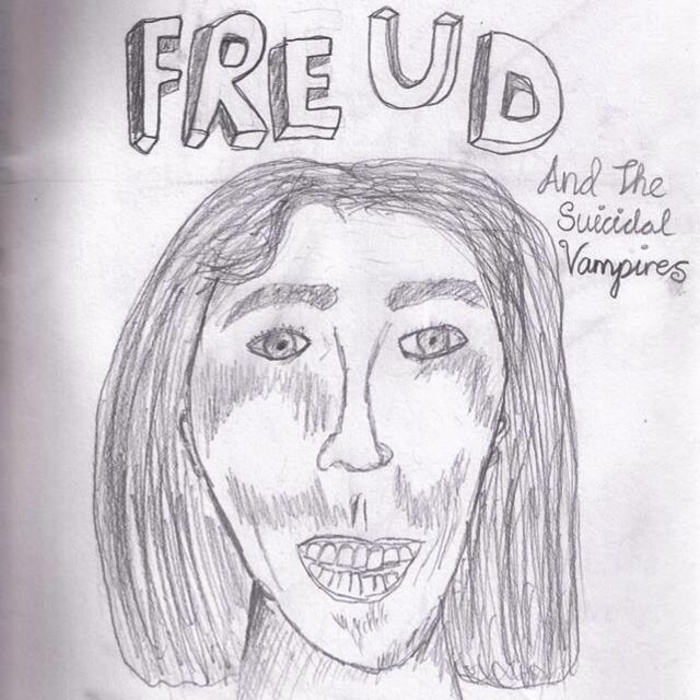 FREUD
And The
Suicidal
Vampires